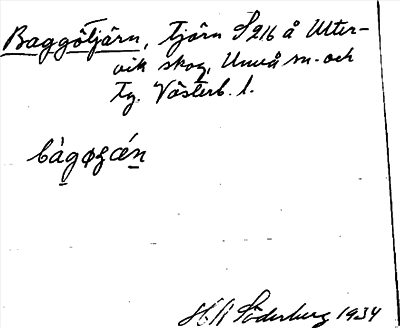 Baggötjärn, tjärn S 216 å Ytter-
vik skog, Umeå sn. och
tg. Västerb. l.
Söderberg 1934